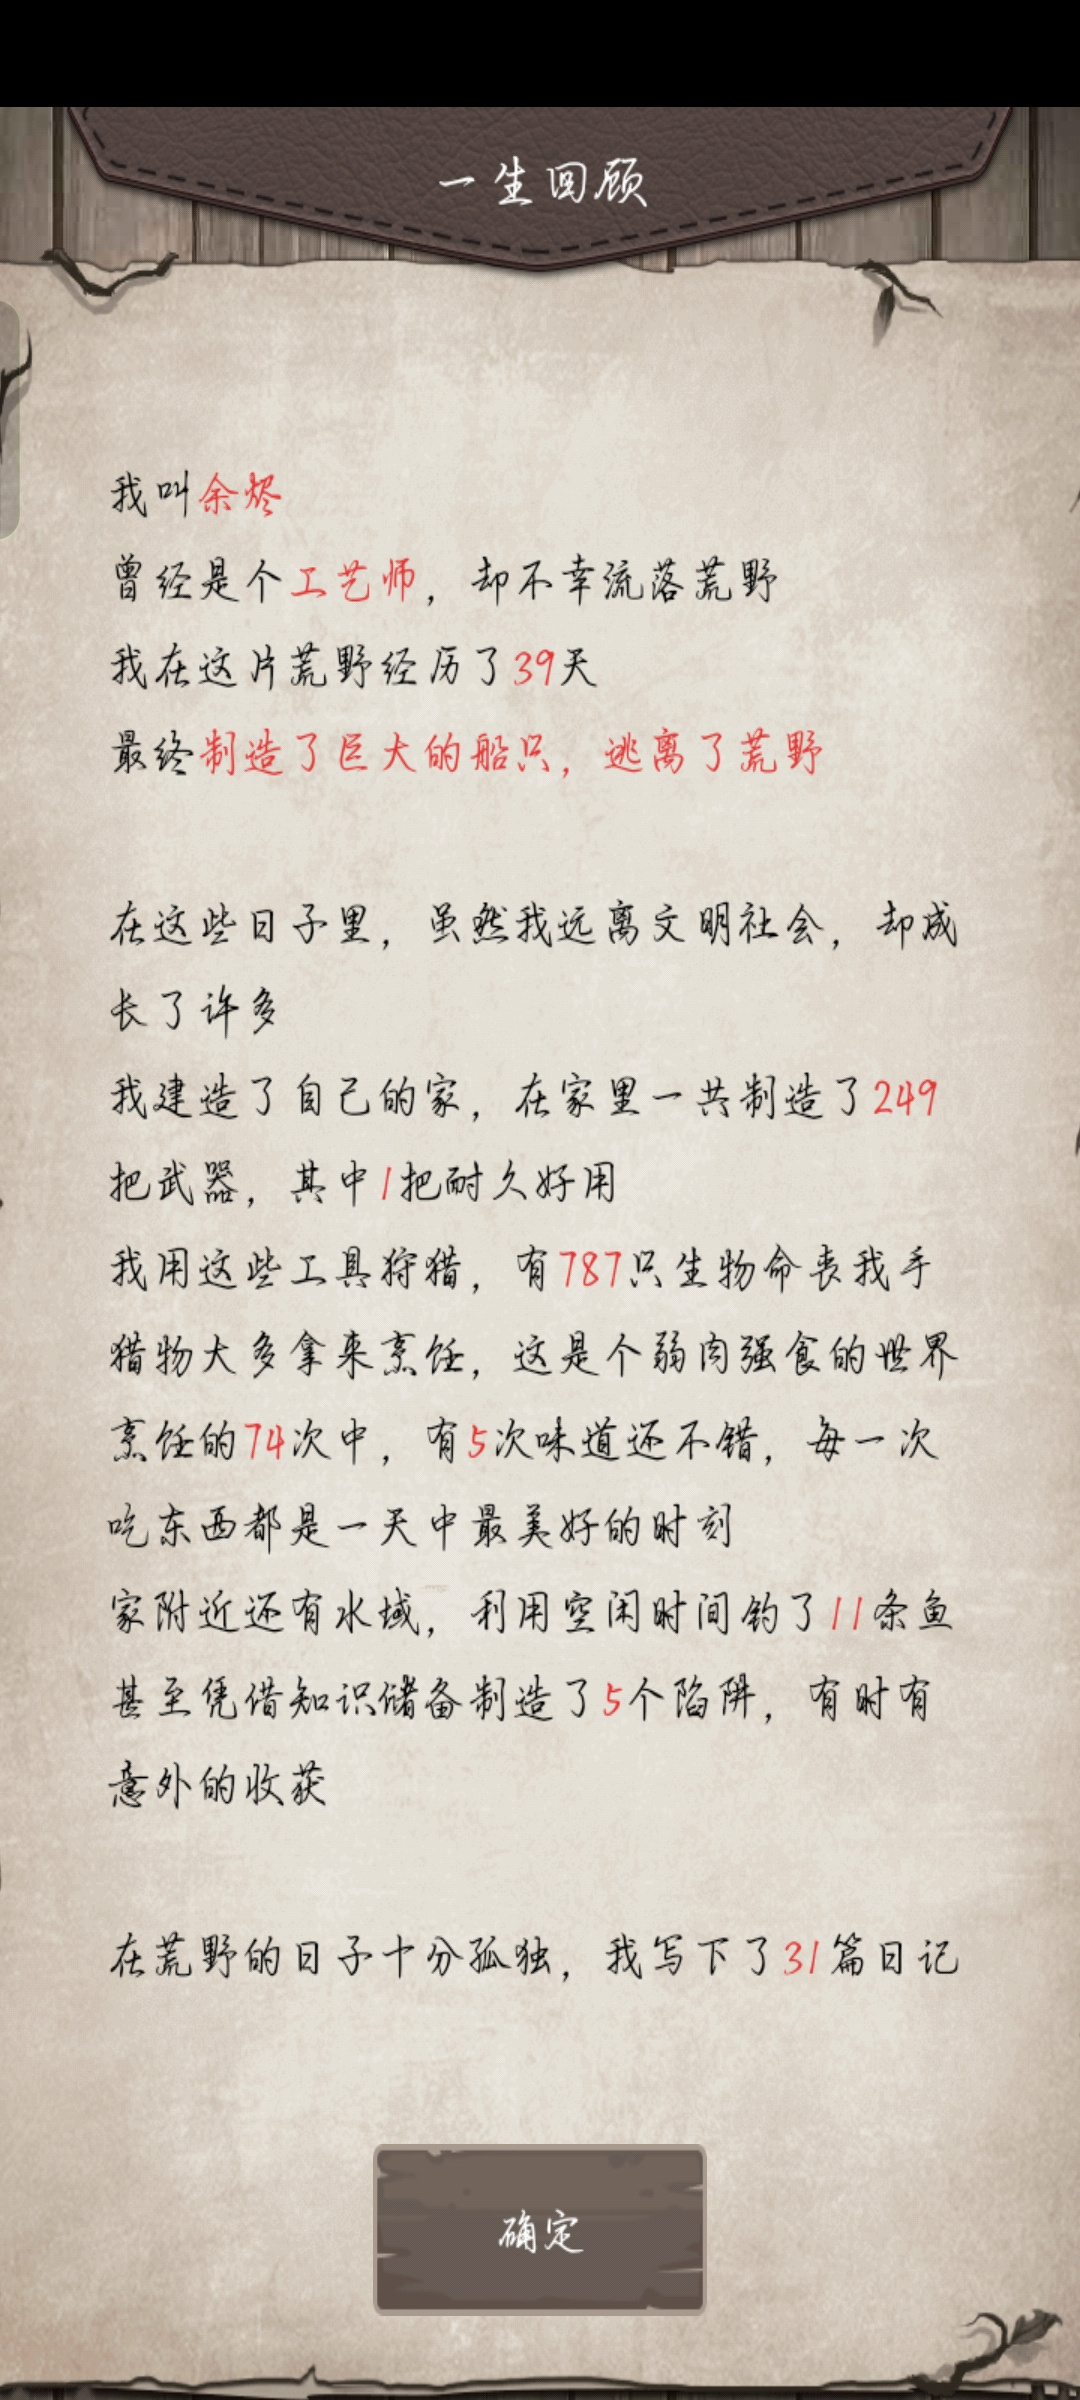 一生回顾
我叫余烬
曾经是个工艺师，却不幸流落荒野
我在这片荒野经历了39天
最终制造了巨大的船只，逃离了荒野
在这些日子里，虽然我远离文明社会，却成
长了许多
我建造了自己的家，在家里一共制造了249
把武器，其中1把耐久好用
我用这些工具狩猎，有787只生物命丧我手
猎物大多拿来烹饪，这是个弱肉强食的世界
烹饪的74次中，有5次味道还不错，每一次
吃东西都是一天中最美好的时刻
家附近还有水域，利用空闲时间钓了11条鱼
甚至凭借知识储备制造了5个陷阱，有时有
意外的收获
在荒野的日子十分孤独，我写下了31篇日记
确定